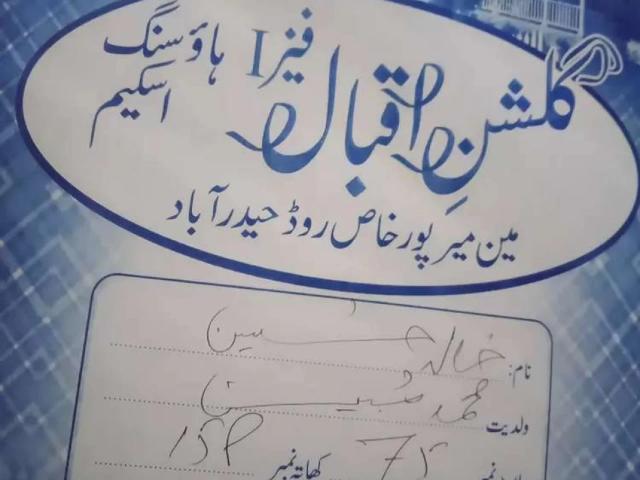 گلشنِ اقبال فیز I ہاؤسنگ اسکیم
مین میرپورخاص روڈ حیدرآباد
نام: خالد حسین
ولدیت محمد مبین
نمبر 75 کھاتہ نمبر 158